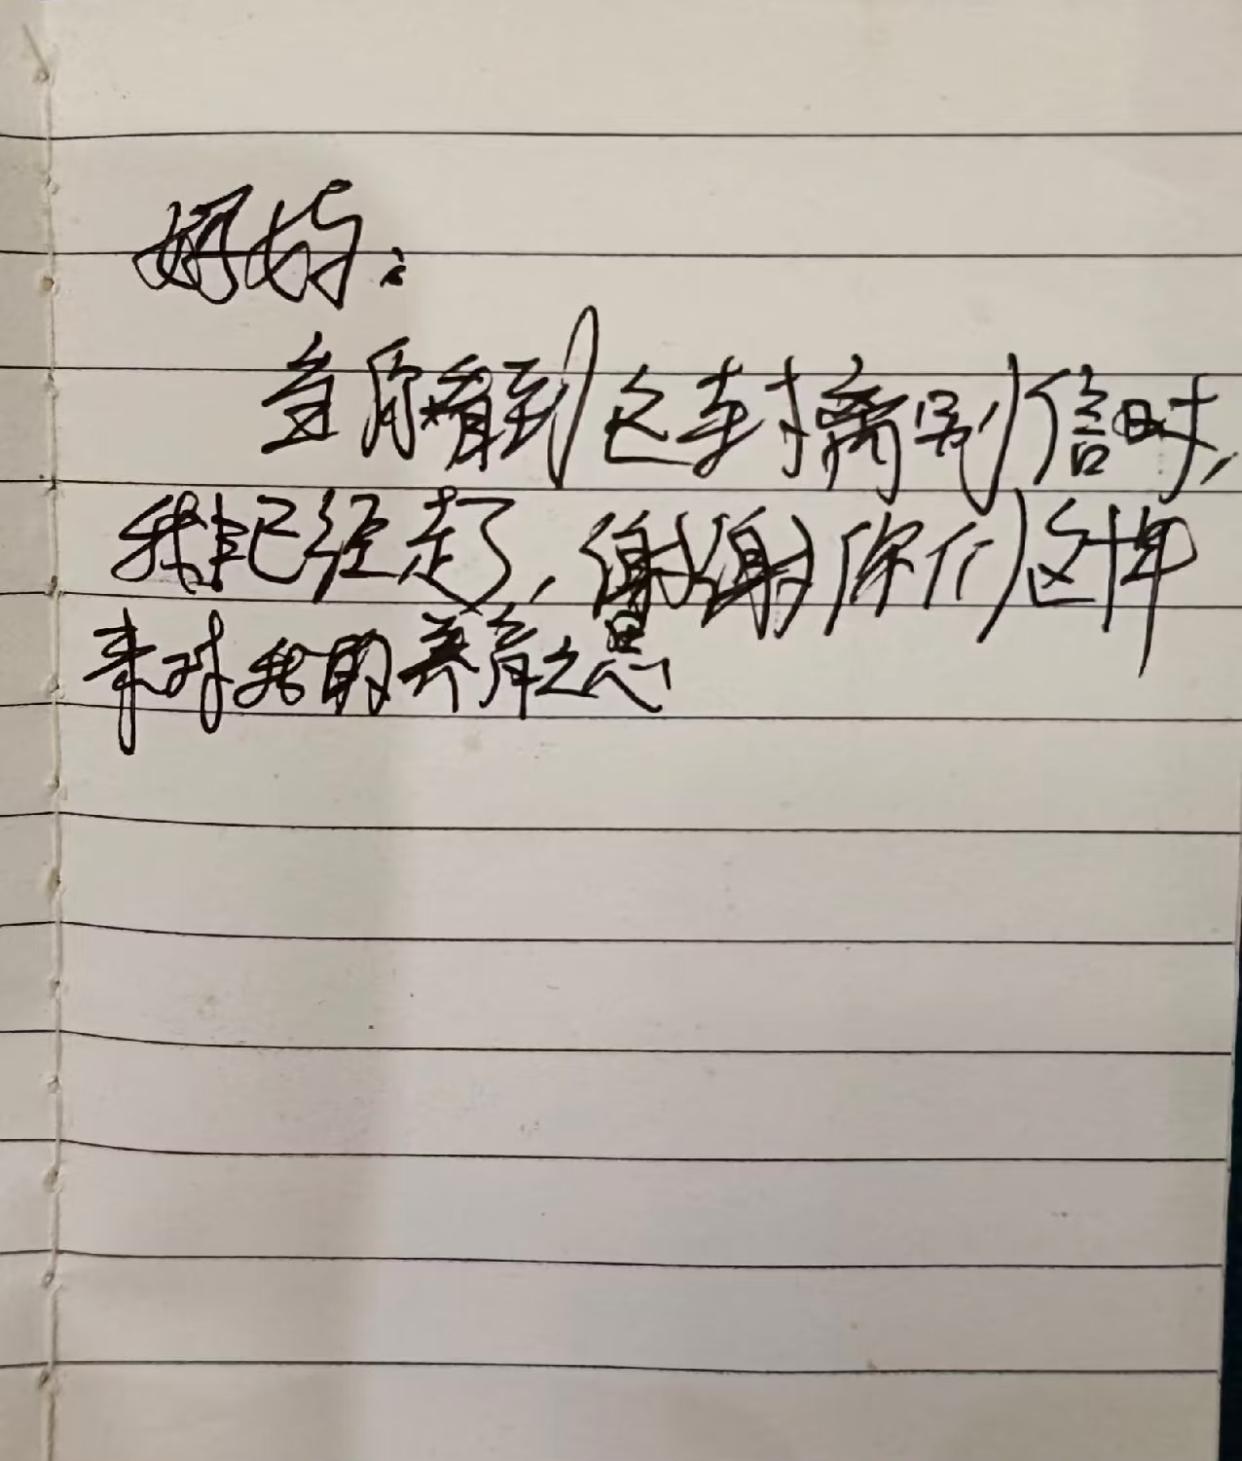 妈妈:
当你看到这封离别信时,
我已经走了,谢谢你们这些年
来对我的养育之恩